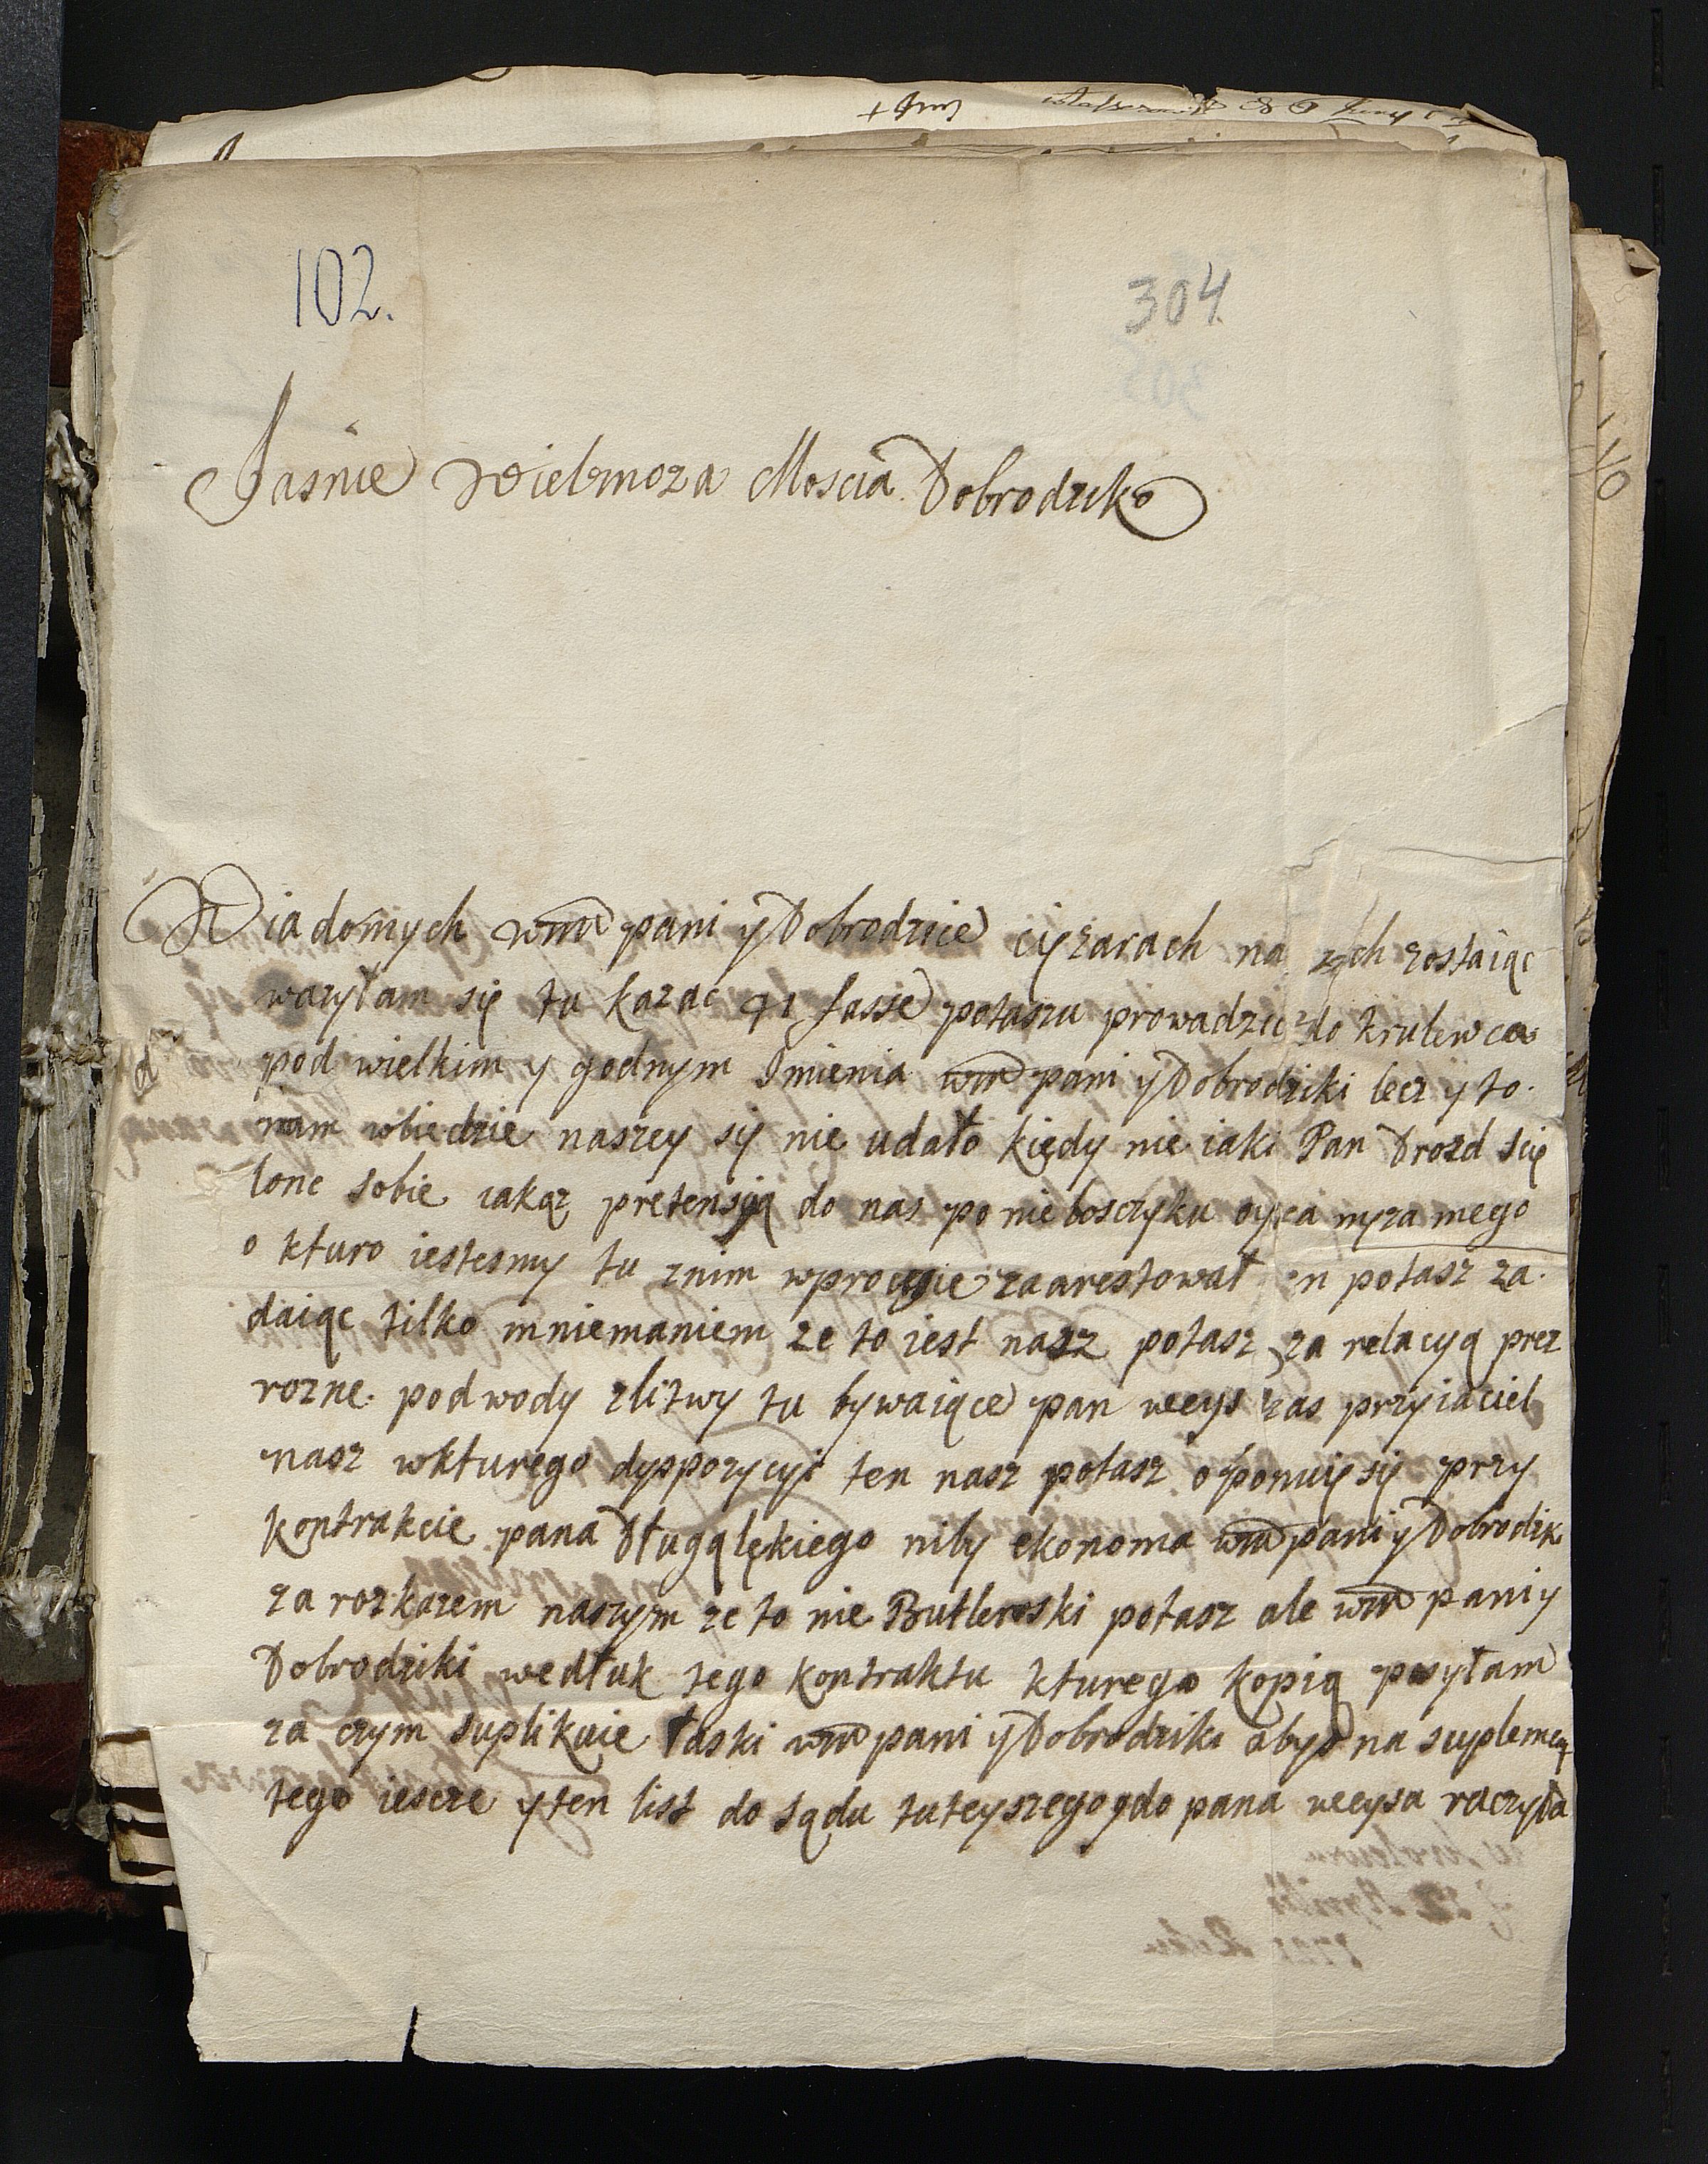 102.
304.
Jasnie Wielmoza Moscia Dobrodziko
Wiadomych wm pani y Dobrodzice ciężarach na zostaiąc
wazyłam się tu kazac 41 fasse potaszu prowadzic do krulewca
pod wielkim y godnym Imienia wm pani y Dobrodziki lecz y to
nam wbiedzie naszey się nie udało kiędy nie iaki Pan Drozd scię
lone sobie iakąz pretensyią do nas po nieboszczyku oyca męza mego
o kturo iestesmy tu znim wprocesie zaarestował potasz za
daiąc tilko mniemaniem ze to iest nasz potasz za relacyą prez
rozne podwody zlitwy tu bywaiące pan weys zas przyiaciel
nasz wkturego dyspozycyi ten nasz potasz oponuię się przy
kontrakcie pana Długąlękiego niby ekonoma wm pani y Dobrodzik
za rozkazem naszym ze to nie Butleroski potasz ale wm pani y
Dobrodziki wedłuk tego kontraktu kturego kopią posyłam
za czym suplikuie łaski wm pani y Dobrodziki abys na suplemen
tego iescze y ten list do sądu tuteyszego ydo pana weysa raczyła